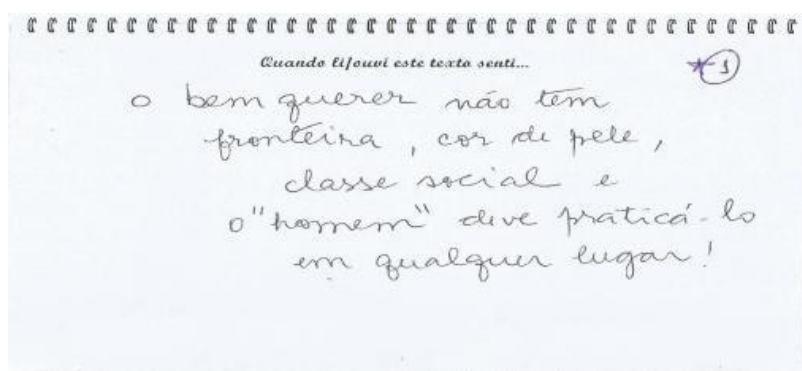 Quando li/ouvi este texto senti...
* 1
o bem querer não tem
fronteira, cor de pele,
classe social e
o "homem" deve praticá-lo
em qualquer lugar!